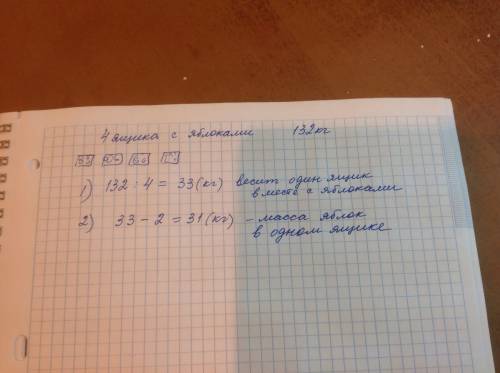 4 ящика с яблоками 132кг
1) 132 : 4 = 33 (кг) весит один ящик
вместе с яблоками
2) 33 - 2 = 31 (кг) - масса яблок
в одном ящике